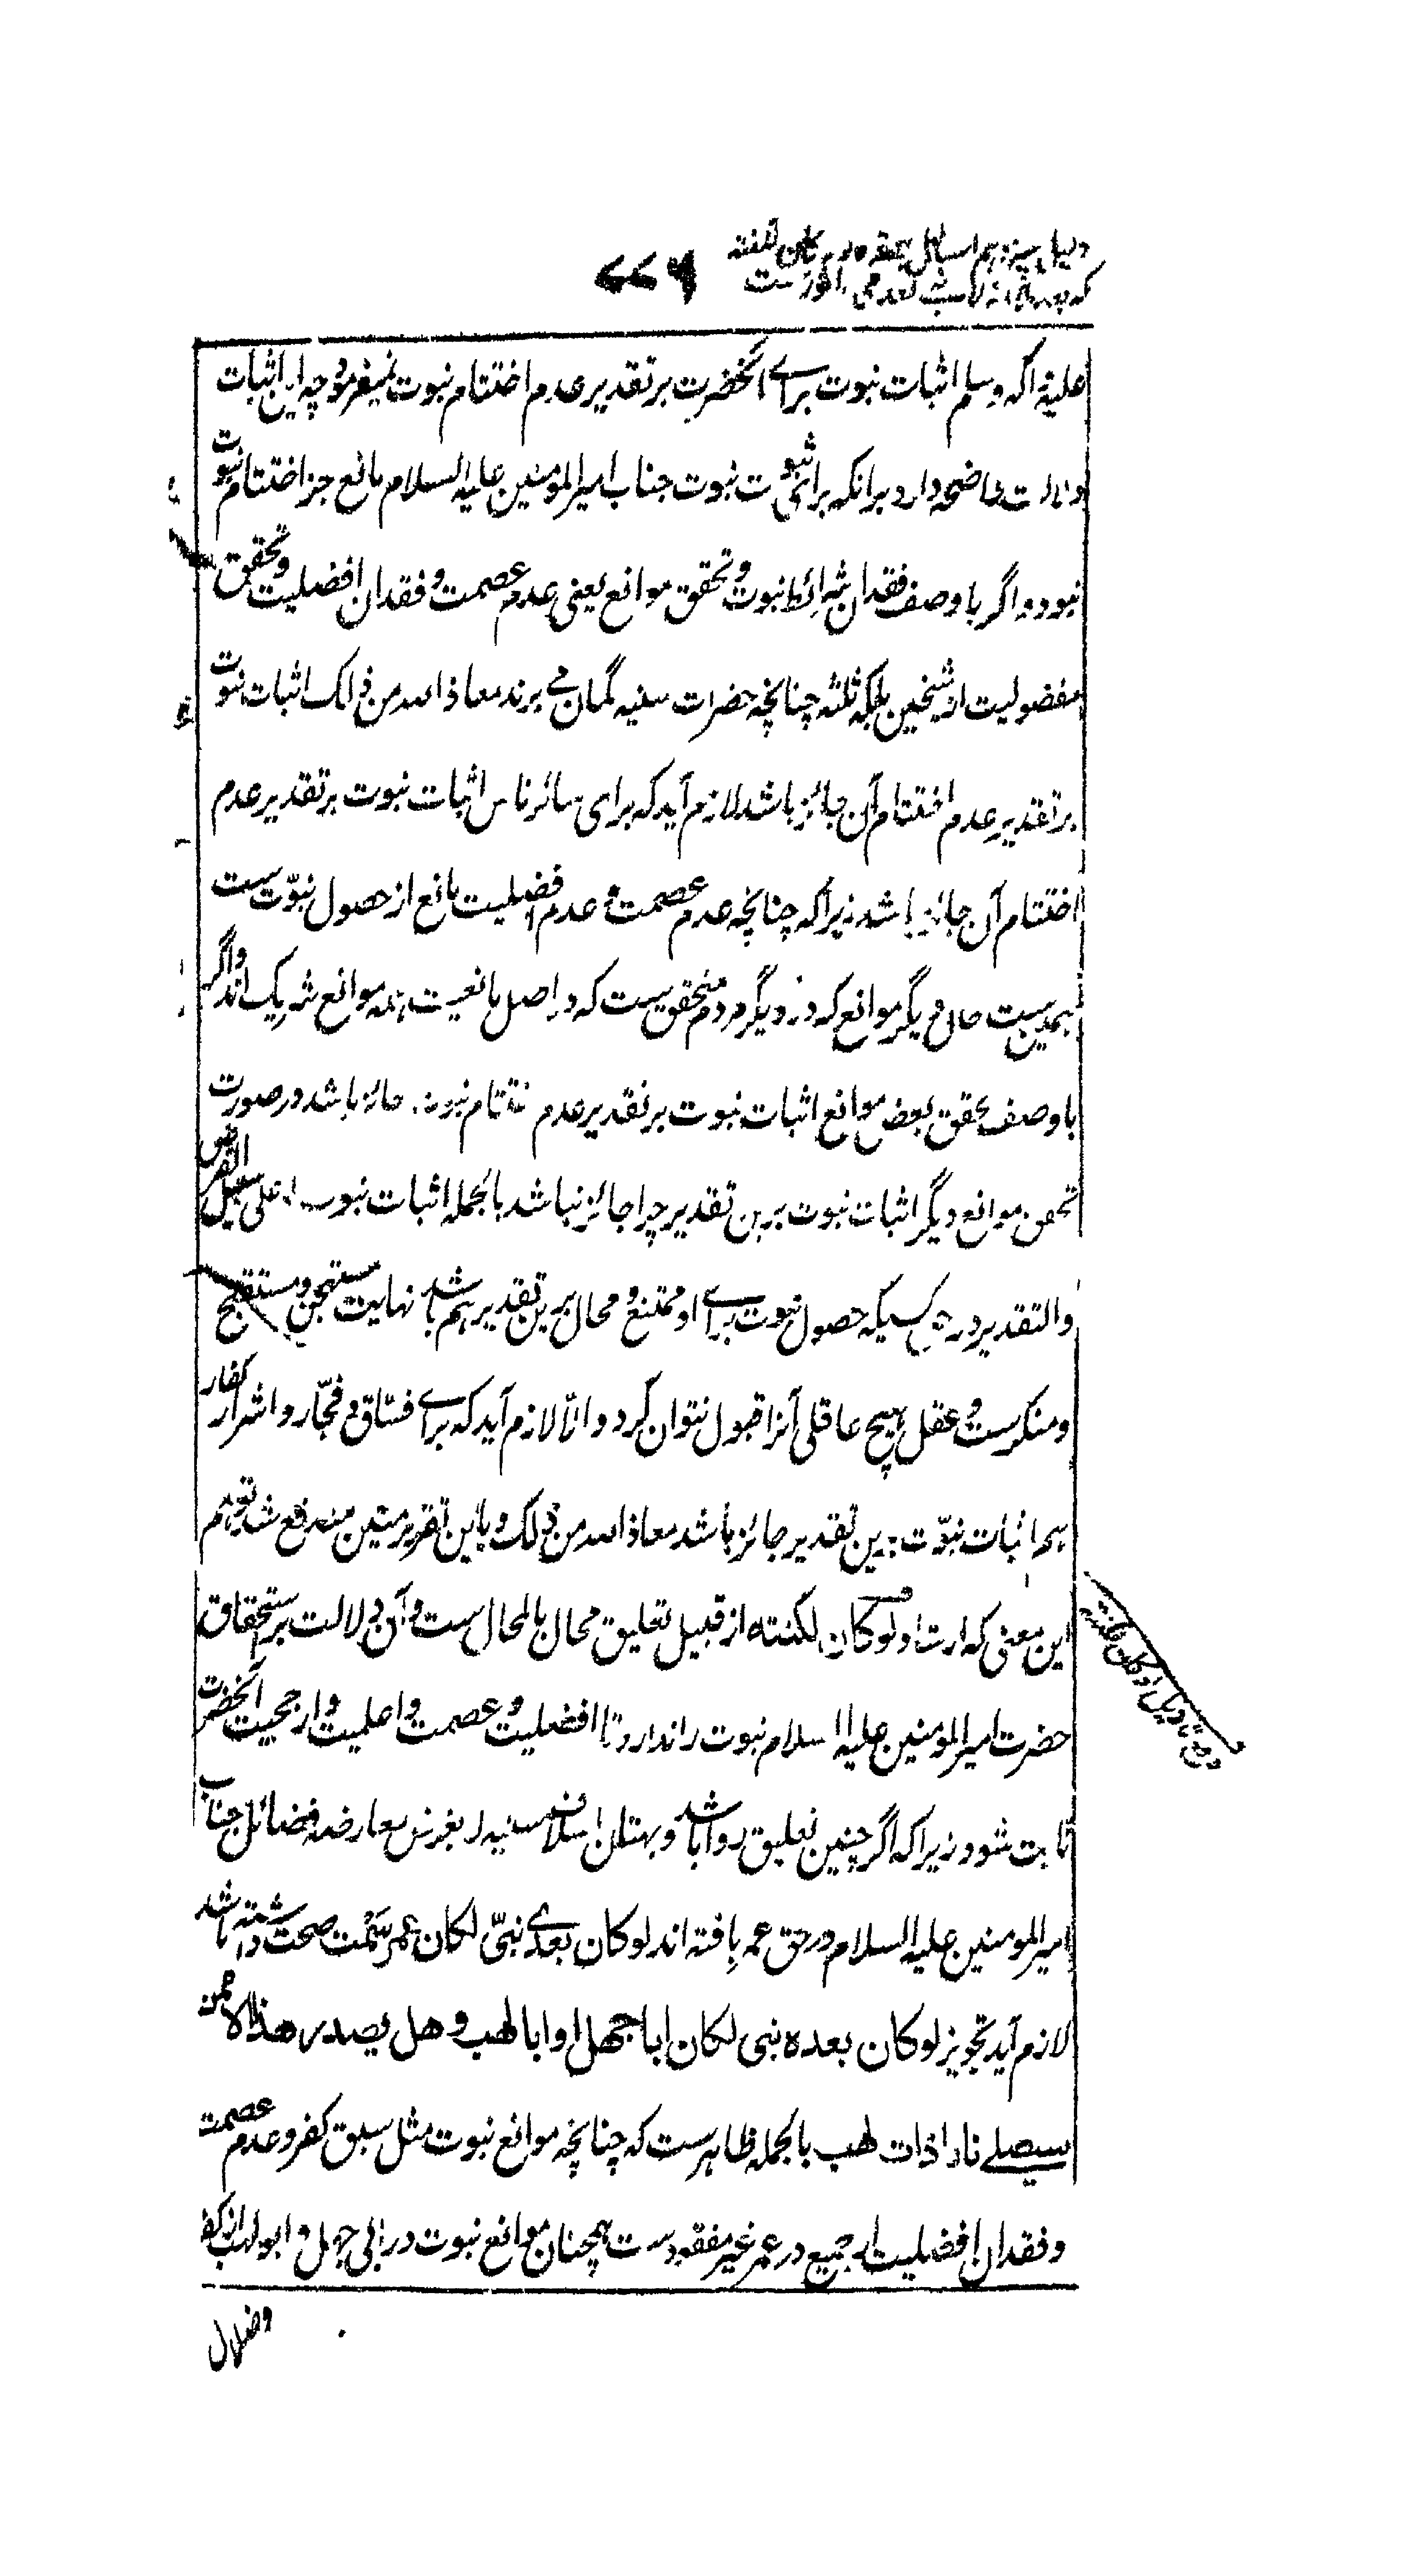 دلیل سیزدهم استدلال بفقره ولو کان لکنته
که بعد
۷۷۶
علیه و آله و سلم اثبات نبوت برای آنحضرت بر تقدیر عدم اختتام نبوت نمیفرمود چه این اثبات
دلالت واضحه دارد برانکه برای ثبوت نبوت جناب امیرالمومنین علیه السلام مانع جز اختتام نبوت
نبوده و اگر با وصف فقدان شرائط نبوت و تحقق موانع یعنی عدم عصمت و فقدان افضلیت و تحقق
مفضولیت از شیخین بلکه ثلثه چنانچه حضرات سنیه گمان می برند معاذ الله من ذلک اثبات نبوت
بر تقدیر عدم اختتام آن جائز باشد لازم آید که برای سائر ناس اثبات نبوت بر تقدیر عدم
اختتام آن جائز باشد زیرا که چنانچه عدم عصمت و عدم افضلیت مانع از حصول نبوّت ست
همچنین ست حال دیگر موانع که در دیگر مردم متحقق ست که در اصل مانعیت همه موانع شریک اند و اگر
با وصف تحقق بعض موانع اثبات نبوت بر تقدیر عدم اختتام نبوت جائز باشد در صورت
تحقق موانع دیگر اثبات نبوت برین تقدیر چرا جائز نباشد بالجمله اثبات نبوت و لو علی سبیل الفرض
والتقدیر در حق کسیکه حصول نبوت برای او ممتنع و محال برین تقدیر هم باشد نهایت مستهجن و مستقبح
و منکر ست و عقل هیچ عاقلی آنرا قبول نتوان کرد و الّا لازم آید که برای فسّاق و فجّار و اشرار کفار
هم اثبات نبوّت برین تقدیر جائز باشد معاذ الله من ذلک و باین تقریر متین مندفع شد توهم
این معنی که ارشاد و لو کان لکنته از قبیل تعلیق محال بالمحال ست و آن دلالت بر استحقاق
حضرت امیرالمومنین علیه السلام نبوت را ندارد تا افضلیت و عصمت و اعلمیت و ارجحیت آنحضرت
ثابت شود زیرا که اگر چنین تعلیق روا باشد و بهتان اسلاف سنیه که بغرض معارضه فضائل جناب
امیرالمومنین علیه السلام در حق عمر بافته اند لو کان بعدی نبیّ لکان عمر سَمْت صحت داشته باشد
لازم آید تجویز لو کان بعده نبی لکان ابا جهل او ابا لهب و هل یصدر هذا الا ممن
سیصلی نارا ذات لهب بالجمله ظاهر ست که چنانچه موانع نبوت مثل سبق کفر و عدم عصمت
و فقدان افضلیت از جمیع در عمر غیر مفقود ست همچنان موانع نبوت در ابی جهل و ابو لهب از کفر
و ضلال